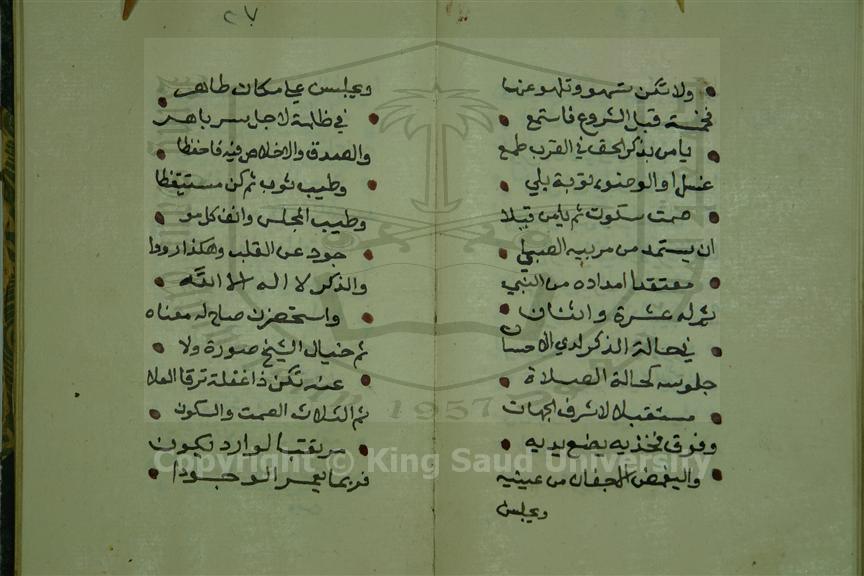 ولا تكن تسهو وتلهو عنها
فخمسة قبل الشروع فاستمع
يا من بذكر الحق في القرب طمع
غسل او الوضوء توبة يلي
صمت سكوت ثم يا من قبلا
ان يستمد من مربيه الصبي
معتقدا امداده من النبي
ثم له عشرة واثنان
في حالة الذكر لدي الاحسان
جلوسه كحالة الصلاة
مستقبلا لاشرف الجهات
وفوق فخذيه يضع يديه
واليغمض الاجفان من عينيه
ويجلس
٢٧
ويجلس علي مكان طاهر
في ظلمة لاجل سر باهر
والصدق والاخلاص فيه فاحفظا
وطيب ثوب ثم كن مستيقظا
وطيب المجلس وانف كل مو
جود عن القلب وهكذا رووا
والذكر لا اله الا الله
واستحضرن صاح له معناه
ثم خيال الشيخ صورة ولا
عنه تكن ذا غفلة ترقا العلا
ثم الثلاث الصمت والسكون
مرتقبا لوارد يكون
فربما يعمر الوجودا
Copyright © King Saud University
1957